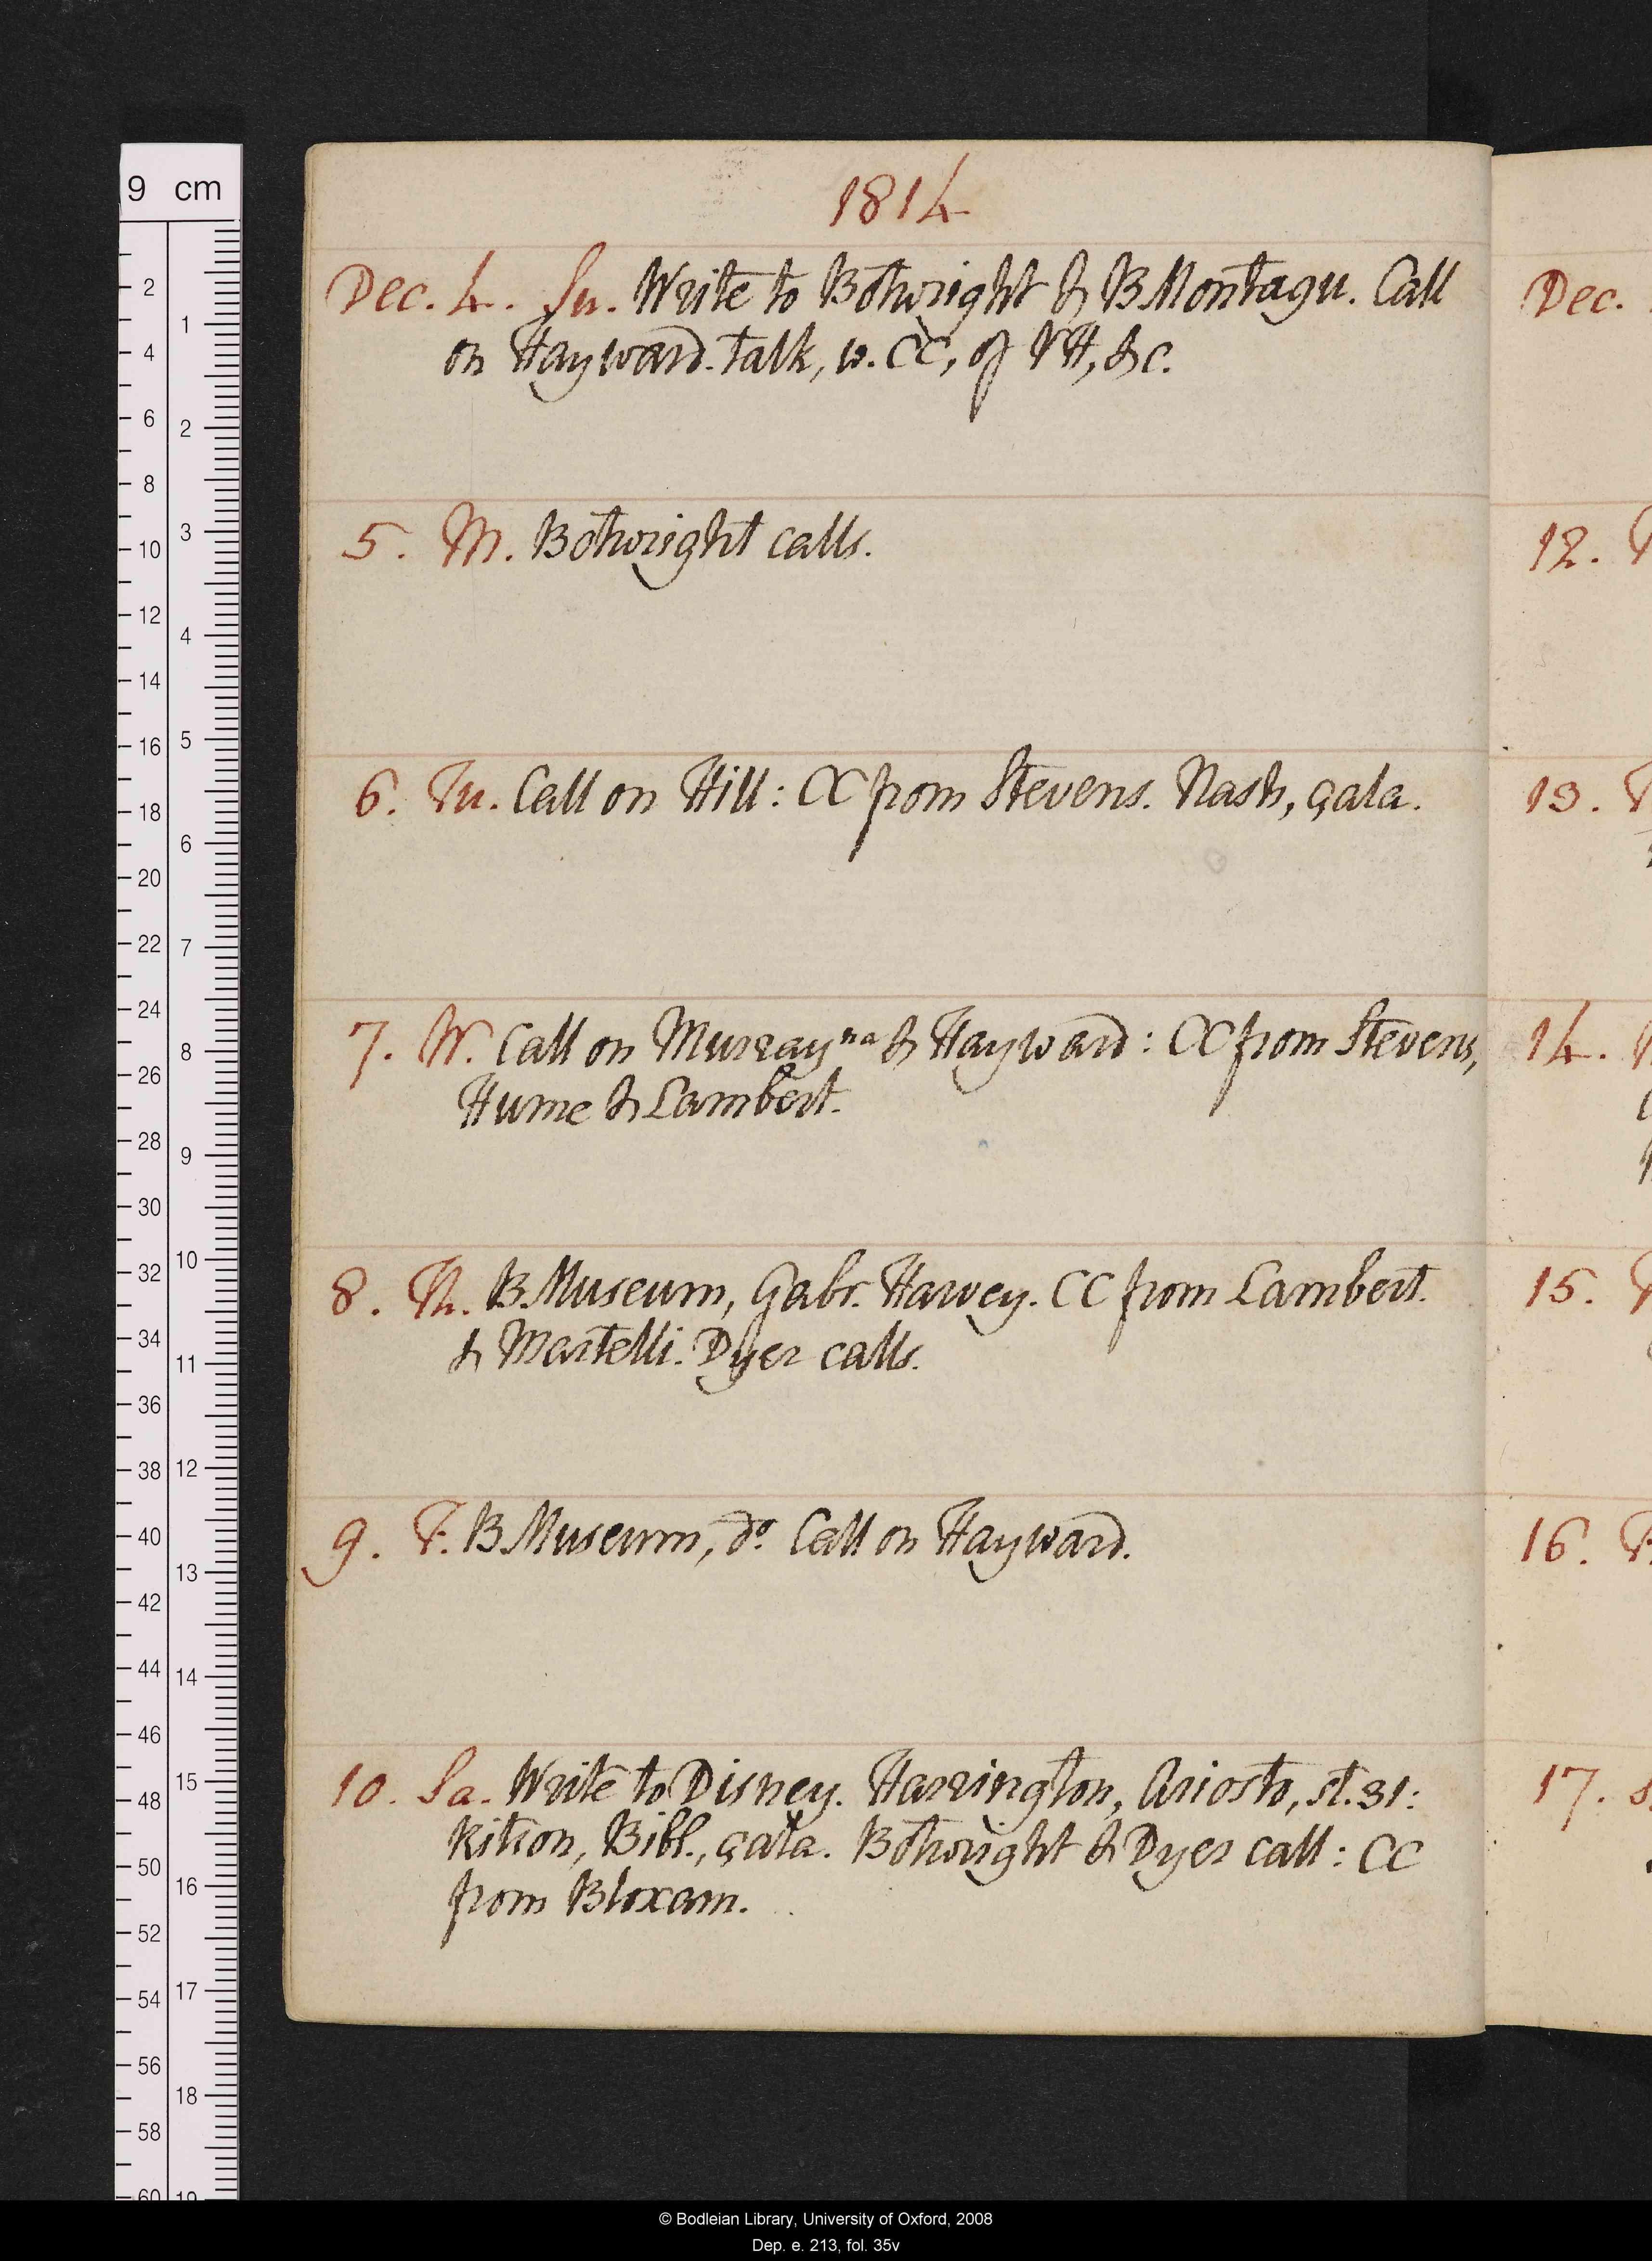 1814
Dec. 4. Su. Write to Bothwright & B Montagu. Call
on Hayward. Talk, w. CC, of TH, &c.
5. M. Bothwright calls.
6. Tu. Call on Hill: CC from Stevens. Nash, çala.
7. W. Call on Murray na & Hayward: CC from Stevens,
Hume & Lambert.
8. Th. B Museum, Gabr. Harvey. CC from Lambert
& Martelli. Dyer calls.
9. F. B Museum, do. Call on Hayward.
10. Sa. Write to Disney. Harrington, Ariosto, st. 31:
Ritson, Bibl., çala. Bothwright & Dyer call: CC
from Bloxam.
Dec.
12.
13.
14.
15.
16.
17.
9 cm
© Bodleian Library, University of Oxford, 2008
Dep. e. 213, fol. 35v